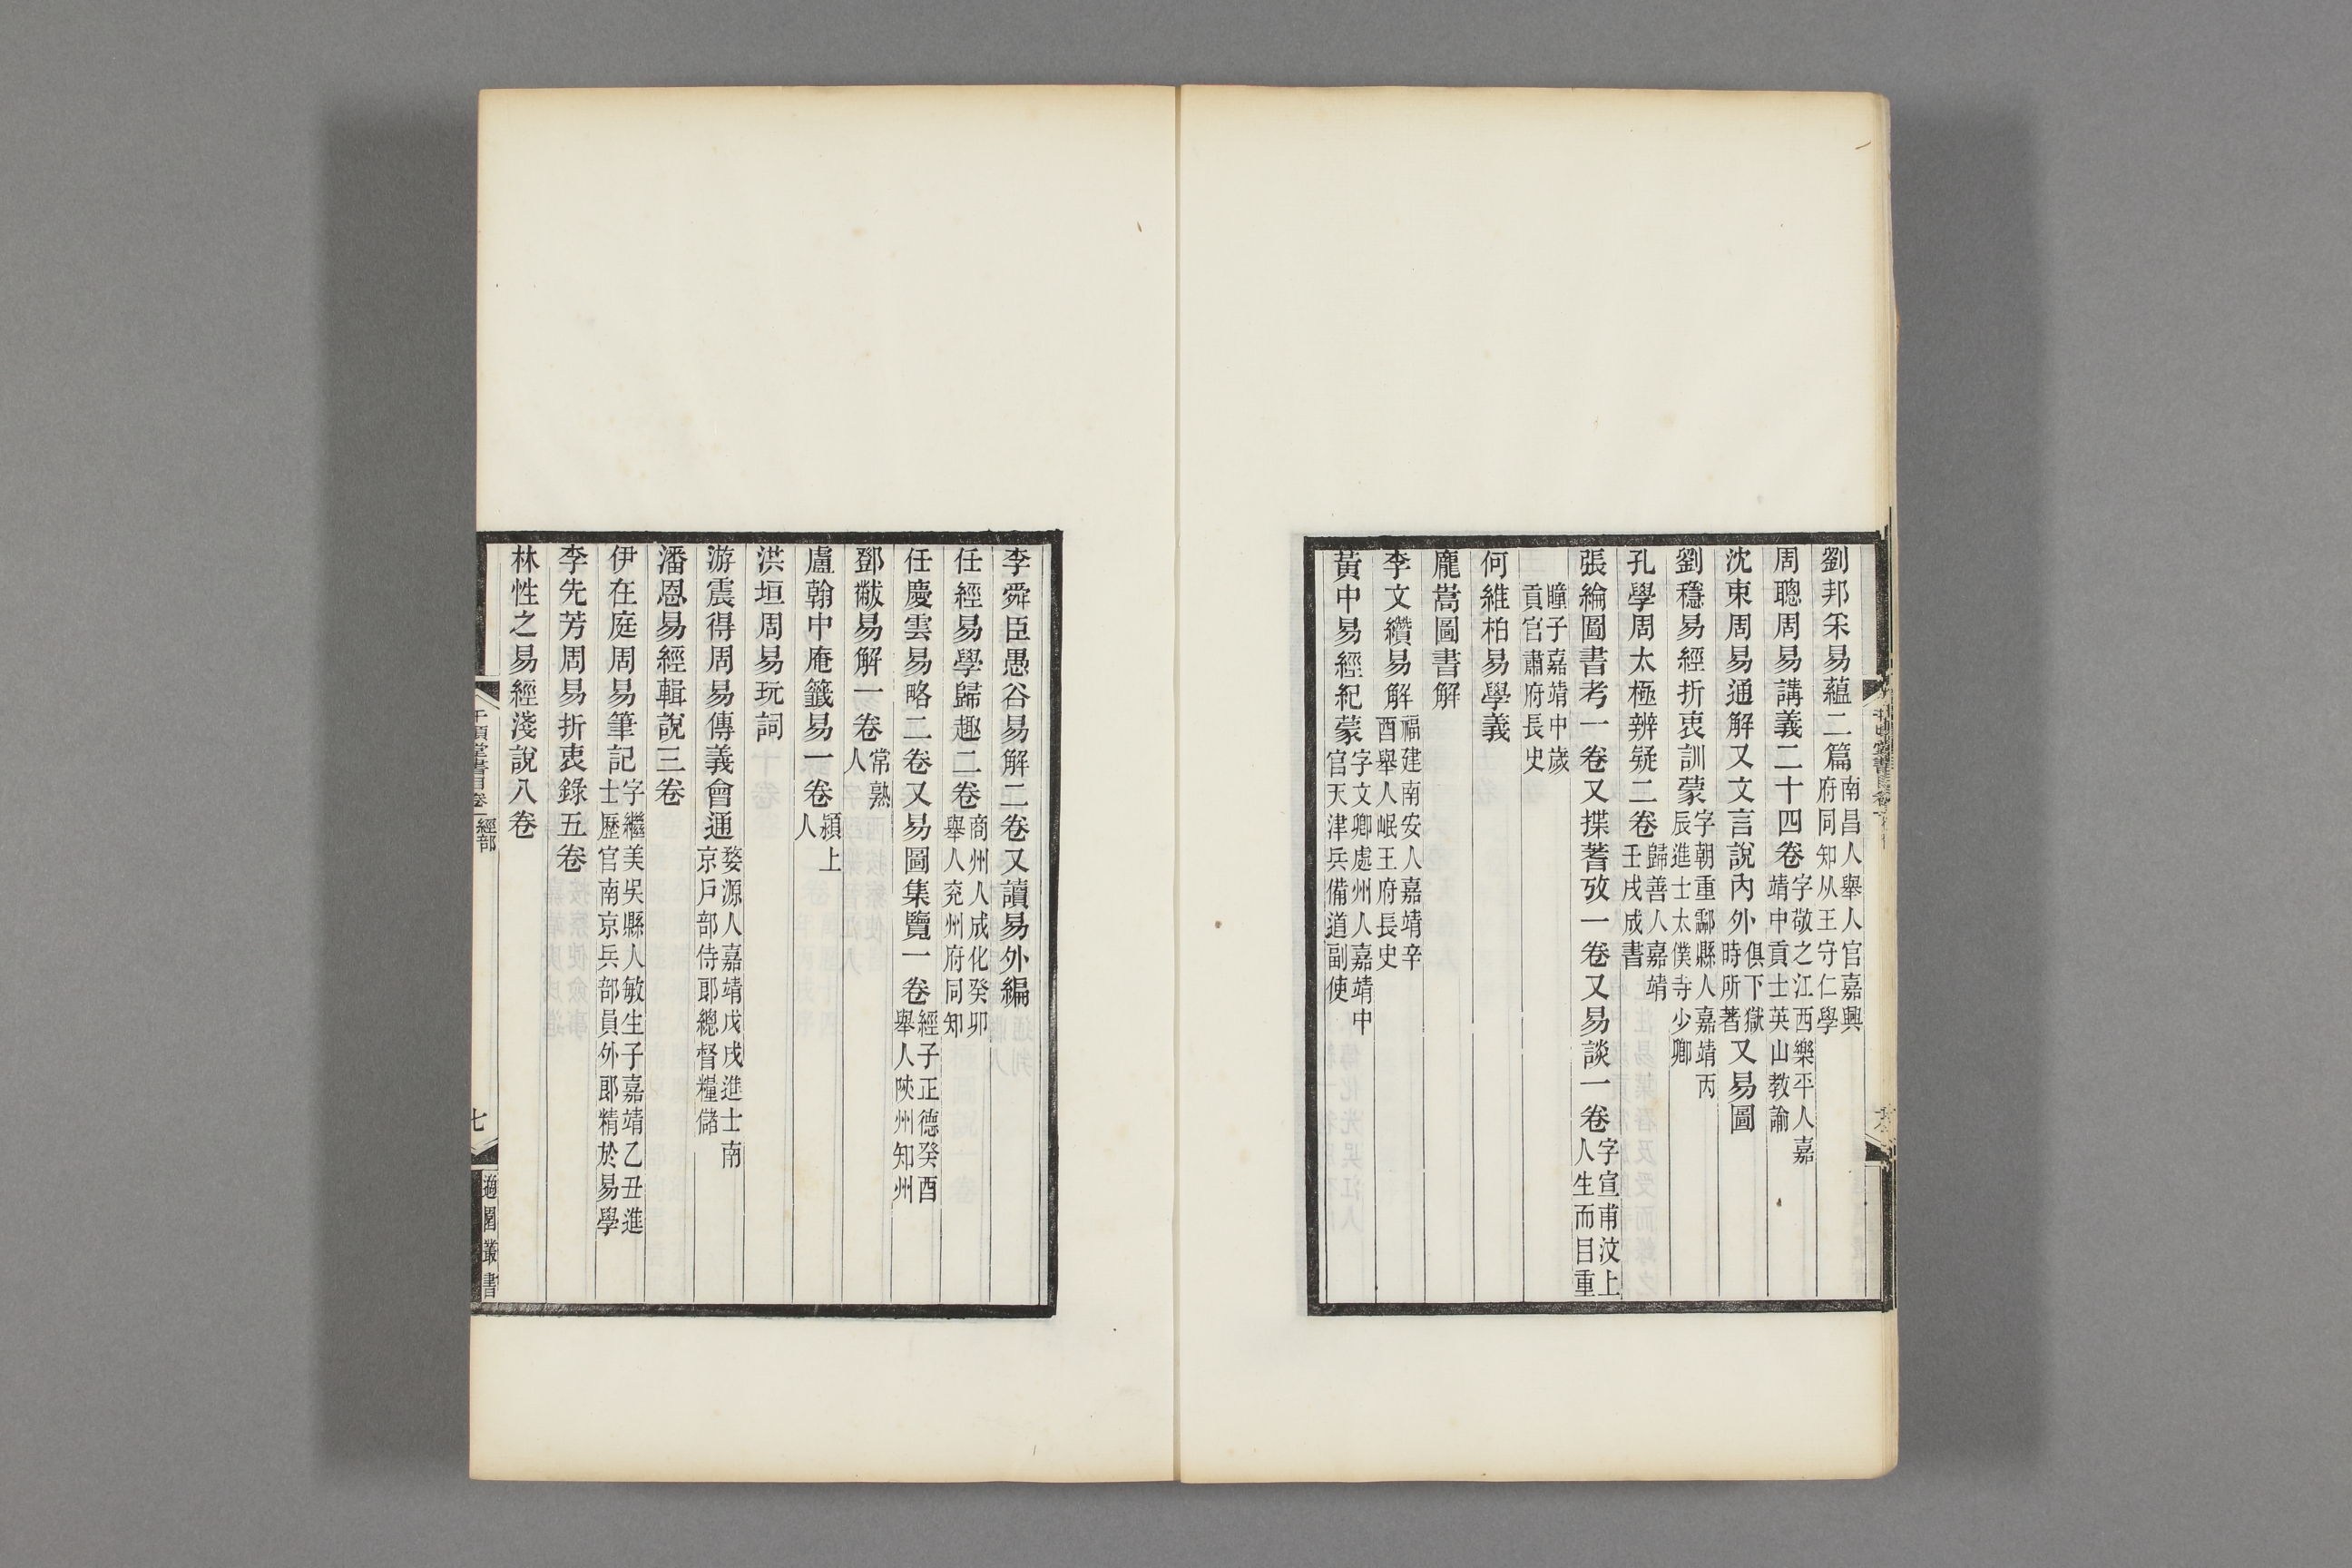 劉邦采易蘊二篇南昌人舉人官嘉興府同知从王守仁學
周聰周易講義二十四卷字敬之江西樂平人嘉靖中貢士英山教諭
沈束周易通解又文言說內外俱下獄時所著又易圖
劉穩易經折衷訓蒙字朝重酃縣人嘉靖丙辰進士太僕寺少卿
孔學周太極辨疑二卷歸善人嘉靖壬戌成書
張綸圖書考一卷又揲蓍攷一卷又易談一卷字宣甫汶上人生而目重
瞳子嘉靖中歲貢官肅府長史
何維柏易學義
龐嵩圖書解
李文纘易解福建南安人嘉靖辛酉舉人岷王府長史
黃中易經紀蒙字文卿處州人嘉靖中官天津兵備道副使
李舜臣愚谷易解二卷又讀易外編
任經易學歸趣二卷商州人成化癸卯舉人兗州府同知
任慶雲易略二卷又易圖集覽一卷經子正德癸酉舉人陝州知州
鄧黻易解一卷常熟人
盧翰中庵籤易一卷潁上人
洪垣周易玩詞
游震得周易傳義會通婺源人嘉靖戊戌進士南京戶部侍郎總督糧儲
潘恩易經輯說三卷
伊在庭周易筆記字繼美吳縣人敏生子嘉靖乙丑進士歷官南京兵部員外郎精於易學
李先芳周易折衷錄五卷
林性之易經淺說八卷
千頃堂書目卷一 經部
七
適園叢書